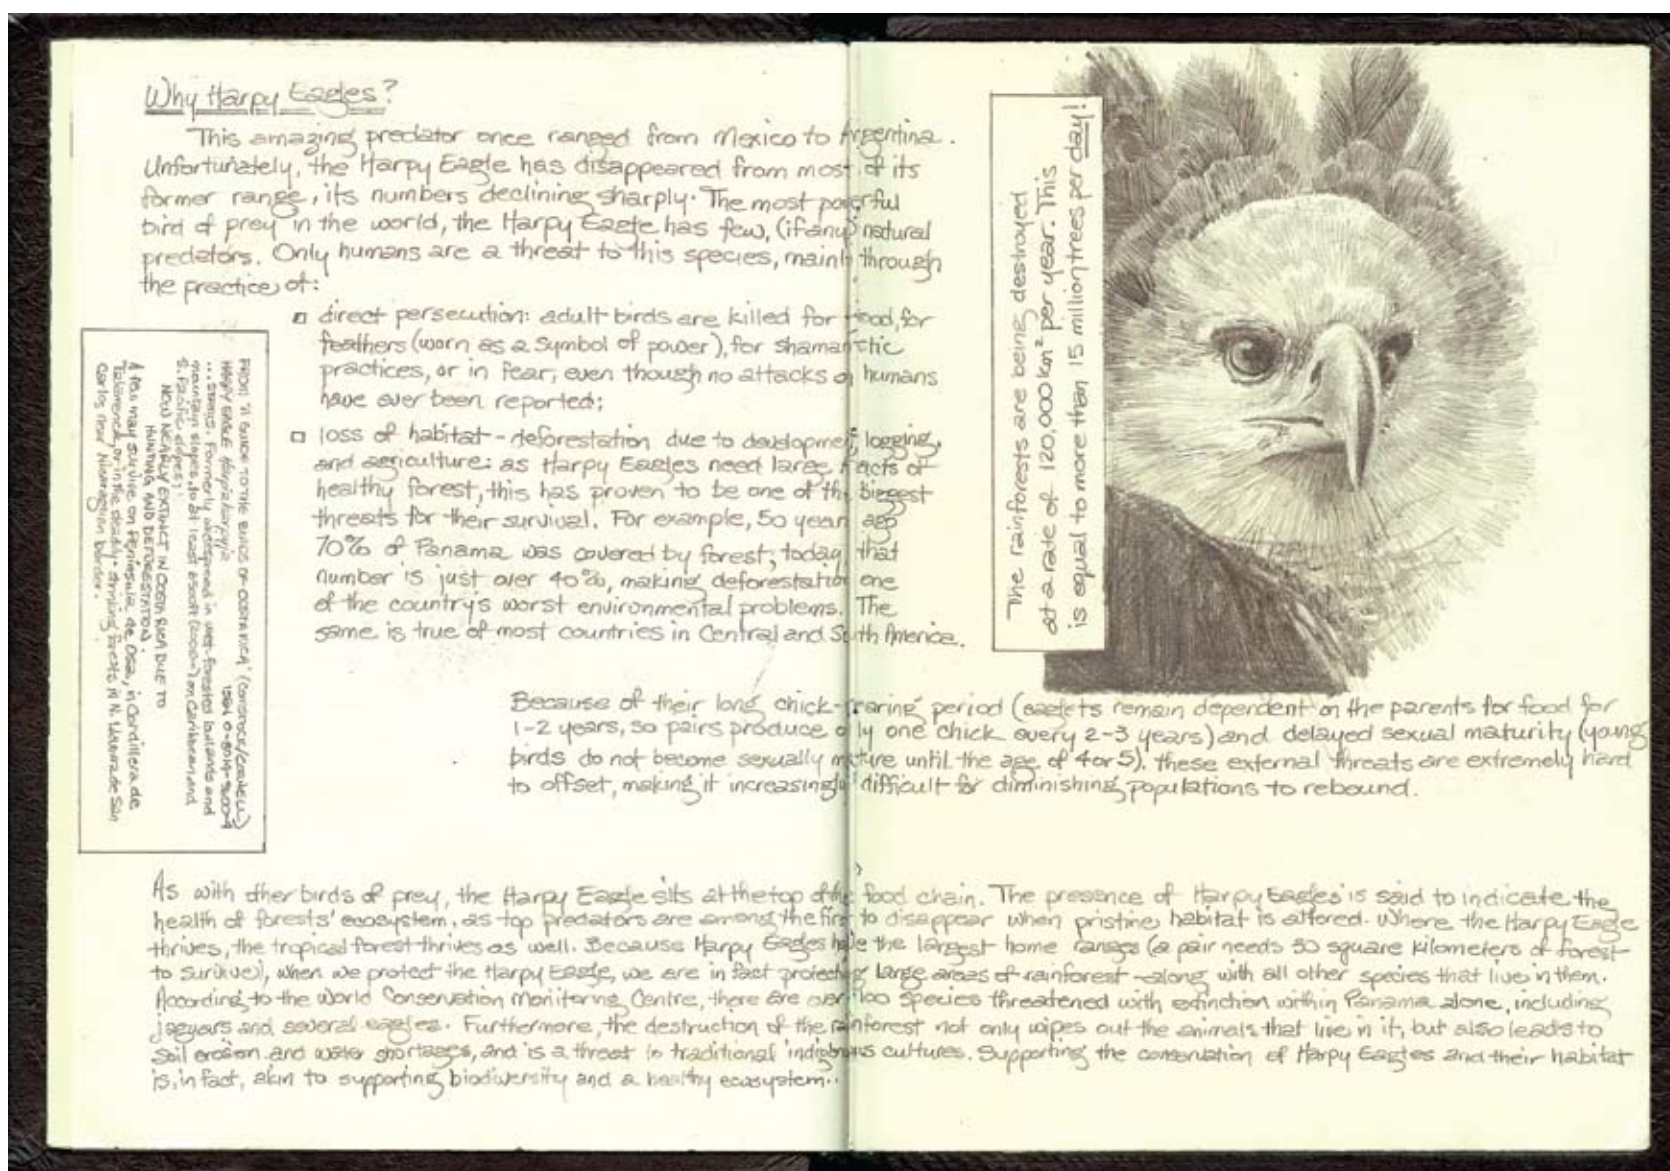 Why Harpy Eagles?
This amazing predator once ranged from Mexico to Argentina.
Unfortunately, the Harpy Eagle has disappeared from most of its
former range, its numbers declining sharply. The most powerful
bird of prey in the world, the Harpy Eagle has few, (if any) natural
predators. Only humans are a threat to this species, mainly through
the practice of:
direct persecution: adult birds are killed for food, for
feathers (worn as a symbol of power), for shamanistic
practices, or in fear, even though no attacks on humans
have ever been reported;
loss of habitat - deforestation due to development, logging,
and agriculture: as Harpy Eagles need large tracts of
healthy forest, this has proven to be one of the biggest
threats for their survival. For example, 50 years ago
70% of Panama was covered by forest; today that
number is just over 40%, making deforestation one
of the country's worst environmental problems. The
same is true of most countries in Central and South America.
FROM "A GUIDE TO THE BIRDS OF COSTA RICA"
HARPY EAGLE Harpia harpyja
... STATUS: Formerly widespread in wet-forested lowlands and
mountain slopes, to at least on Caribbean and
S. Pacific slopes;
NOW NEARLY EXTINCT IN COSTA RICA DUE TO
HUNTING AND DEFORESTATION.
A few may survive on Peninsula de Osa, in Cordillera de
Talamanca, or in the forests in N. de San
Carlos near Nicaraguan border.
The rainforests are being destroyed
at a rate of 120,000 km² per year. This
is equal to more than 15 million trees per day!
Because of their long chick-rearing period (eaglets remain dependent on the parents for food for
1-2 years, so pairs produce only one chick every 2-3 years) and delayed sexual maturity (young
birds do not become sexually mature until the age of 4 or 5), these external threats are extremely hard
to offset, making it increasingly difficult for diminishing populations to rebound.
As with other birds of prey, the Harpy Eagle sits at the top of the food chain. The presence of Harpy Eagles is said to indicate the
health of forests' ecosystem, as top predators are among the first to disappear when pristine habitat is altered. Where the Harpy Eagle
thrives, the tropical forest thrives as well. Because Harpy Eagles have the largest home ranges (a pair needs 30 square kilometers of forest
to survive), when we protect the Harpy Eagle, we are in fact protecting large areas of rainforest - along with all other species that live in them.
According to the World Conservation Monitoring Centre, there are over 100 species threatened with extinction within Panama alone, including
jaguars and several eagles. Furthermore, the destruction of the rainforest not only wipes out the animals that live in it, but also leads to
soil erosion and water shortages, and is a threat to traditional indigenous cultures. Supporting the conservation of Harpy Eagles and their habitat
is, in fact, akin to supporting biodiversity and a healthy ecosystem..